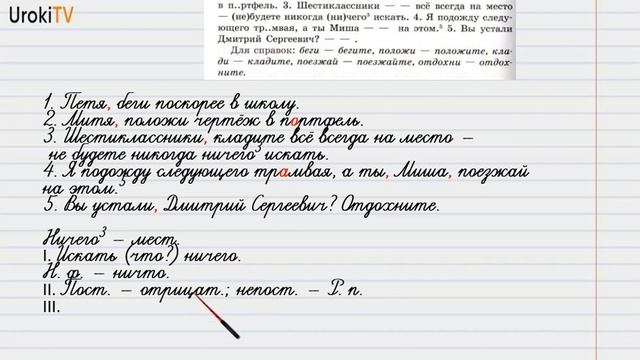 UrokiTV
в п..ртфель. 3. Шестиклассники — — всё всегда на место
— (не)будете никогда (ни)чего³ искать. 4. Я подожду следу-
ющего тр..мвая, а ты Миша — — на этом.⁵ 5. Вы устали
Дмитрий Сергеевич? — — .
Для справок: беги — бегите, положи — положите, кла-
ди — кладите, поезжай — поезжайте, отдохни — отдох-
ните.
1. Петя, беги поскорее в школу.
2. Митя, положи чертёж в портфель.
3. Шестиклассники, кладите всё всегда на место –
не будете никогда ничего³ искать.
4. Я подожду следующего трамвая, а ты, Миша, поезжай
на этом.⁵
5. Вы устали, Дмитрий Сергеевич? Отдохните.
Ничего³ – мест.
I. Искать (что?) ничего.
Н. ф. – ничто.
II. Пост. – отрицат.; непост. – Р. п.
III.